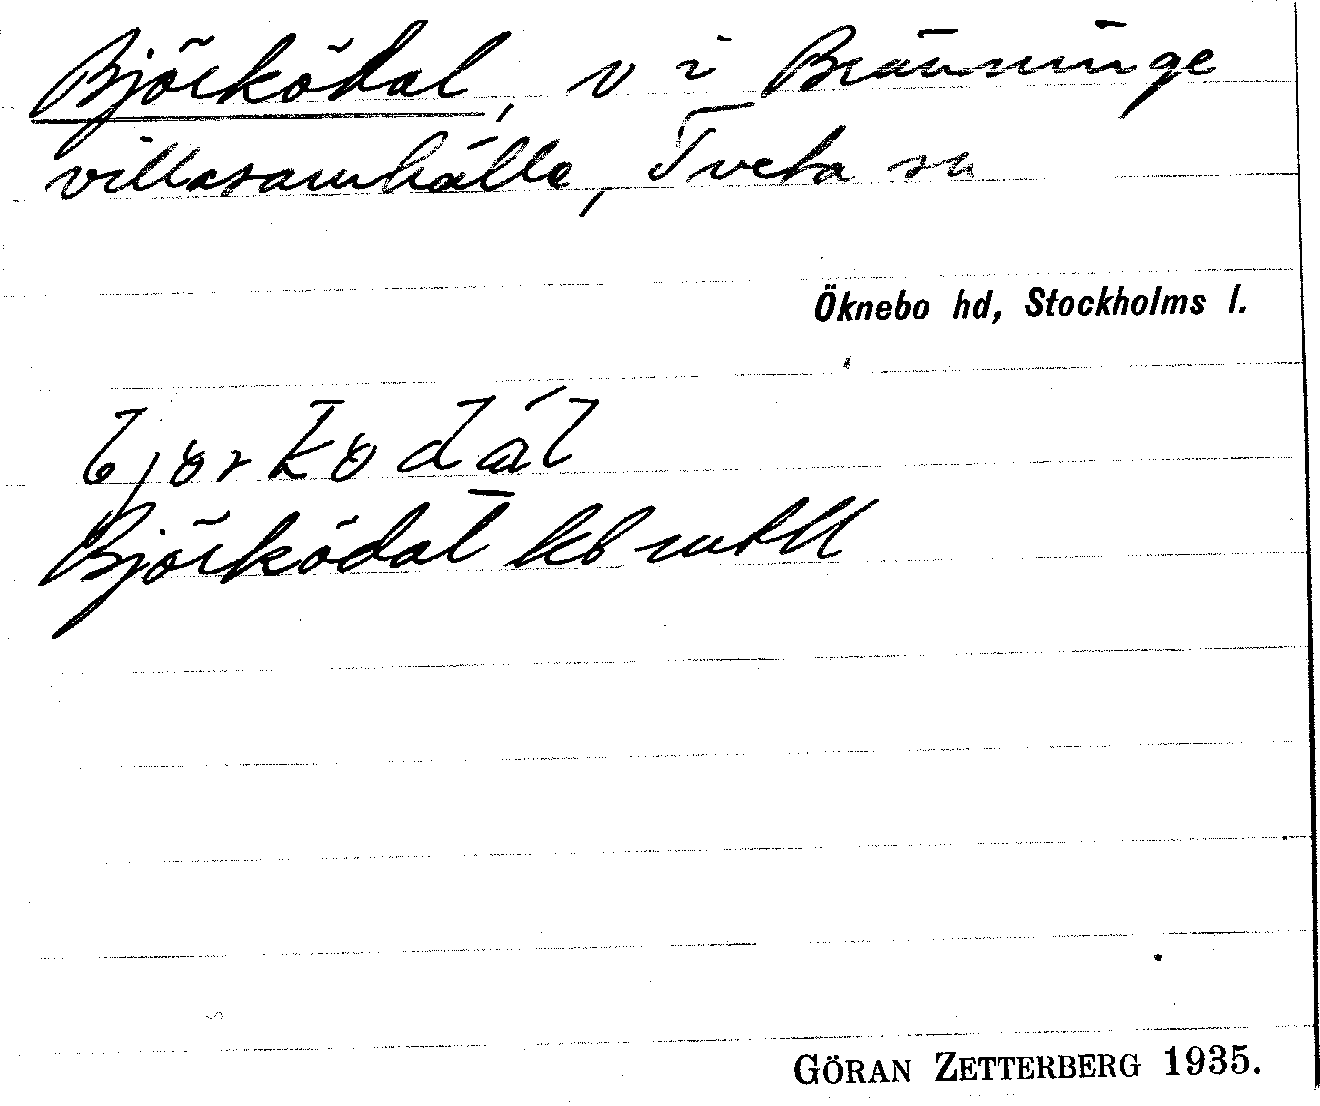 Björködal, v i Bränninge
villasamhälle, Tveta sn
Öknebo hd, Stockholms l.
bjorkodál
Björködal kb mtll
GÖRAN ZETTERBERG 1935.